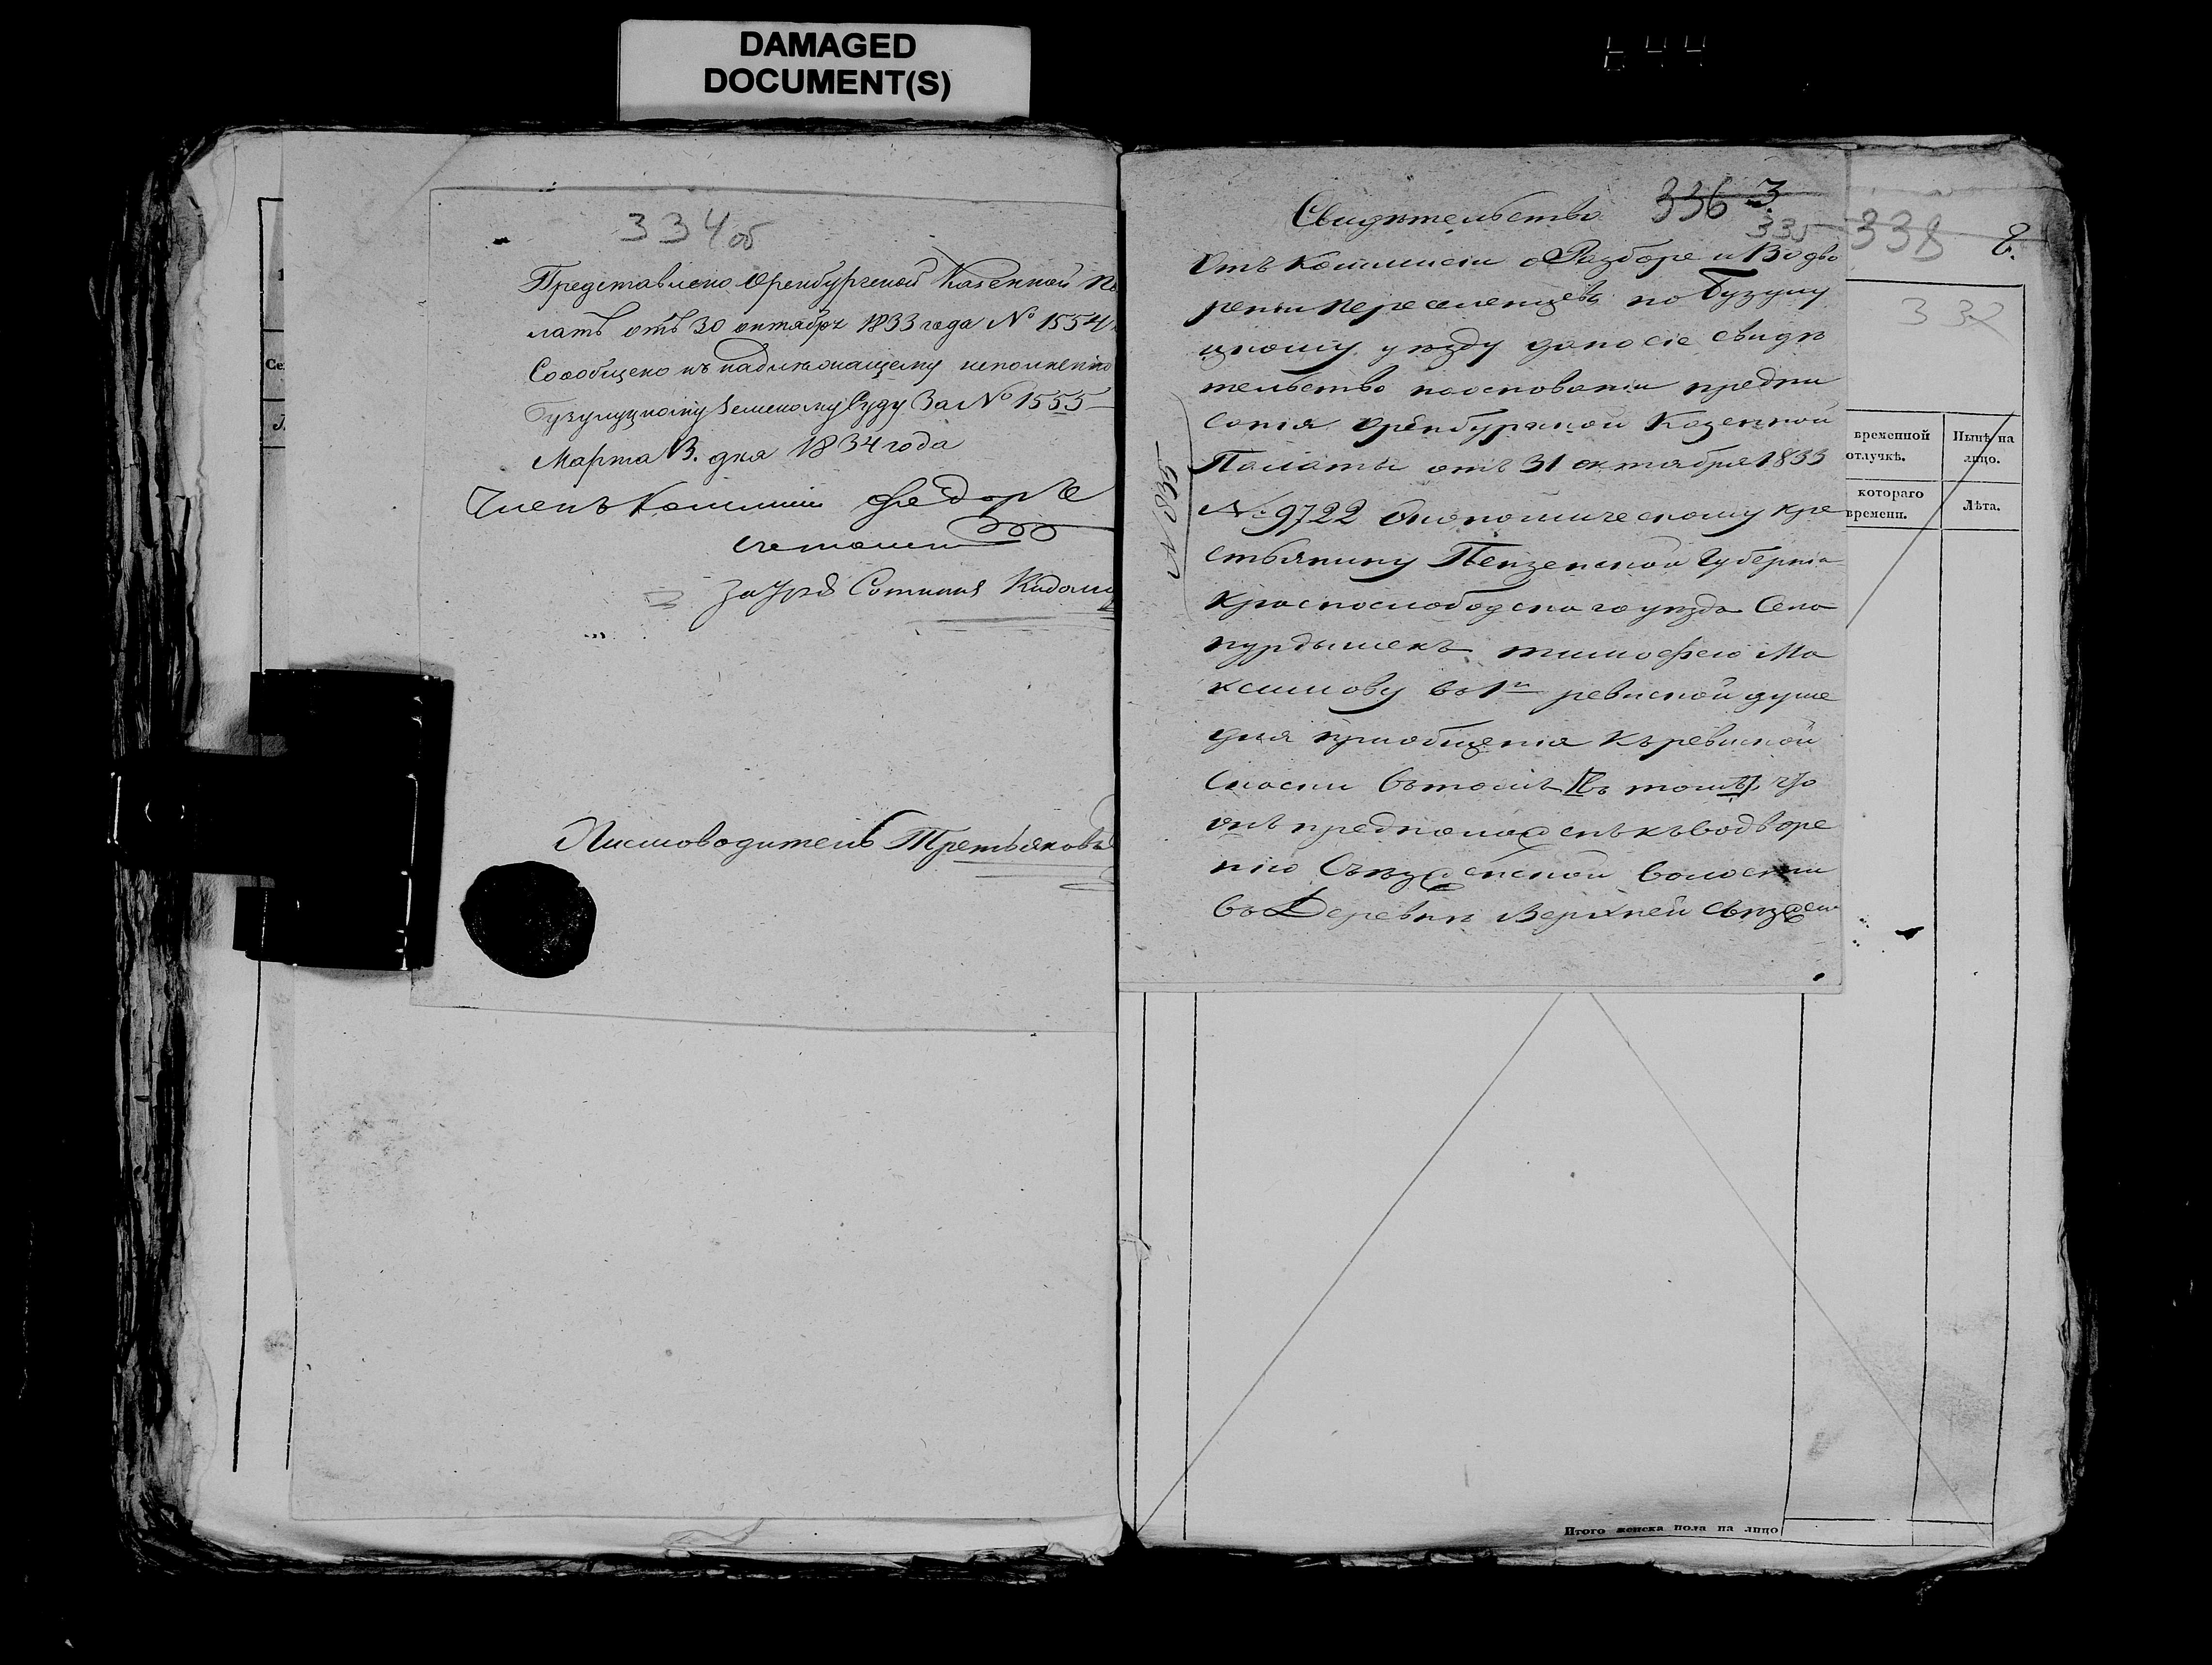 DAMAGED
DOCUMENT(S)
334 об
Представлено Оренбургской Казенной Па
латѣ отъ 30 октября 1833 года № 1554
Сообщено къ надлежащему исполненію
Бузулуцкому Земскому Суду За № 1555
Марта 3. дня 1834 года
Членъ Коммиссіи Федоръ
Зауряд Сотникъ
Письмоводитель Третьяковъ
Свидѣтельство 336 3
335 338 8.
332
Отъ Коммисіи о Разборе и Водво
реніи переселенцевъ по Бузулу
цкому уезду дано сіе свидѣ
тельство наоснованіи предпи
санія Оренбурской Казенной
Палаты отъ 31 октября 1833
№ 9722 Экономическому кре
стьянину Пензенской Губерніи
Краснослободскаго уѣзда Села
пурдышекъ тимофею Ма
ксимову въ 1й ревиской душе
для пріобщенія къ ревиской
сказки въ томъ въ томъ, что
онъ предположенъ къ водворе
нію Съезженской волости
въ Деревни Верхней Съезжей
№ 835
временной
отлучкѣ.
Нынѣ на
лицо.
котораго
времени.
Лѣта.
Итого женска пола на лицо